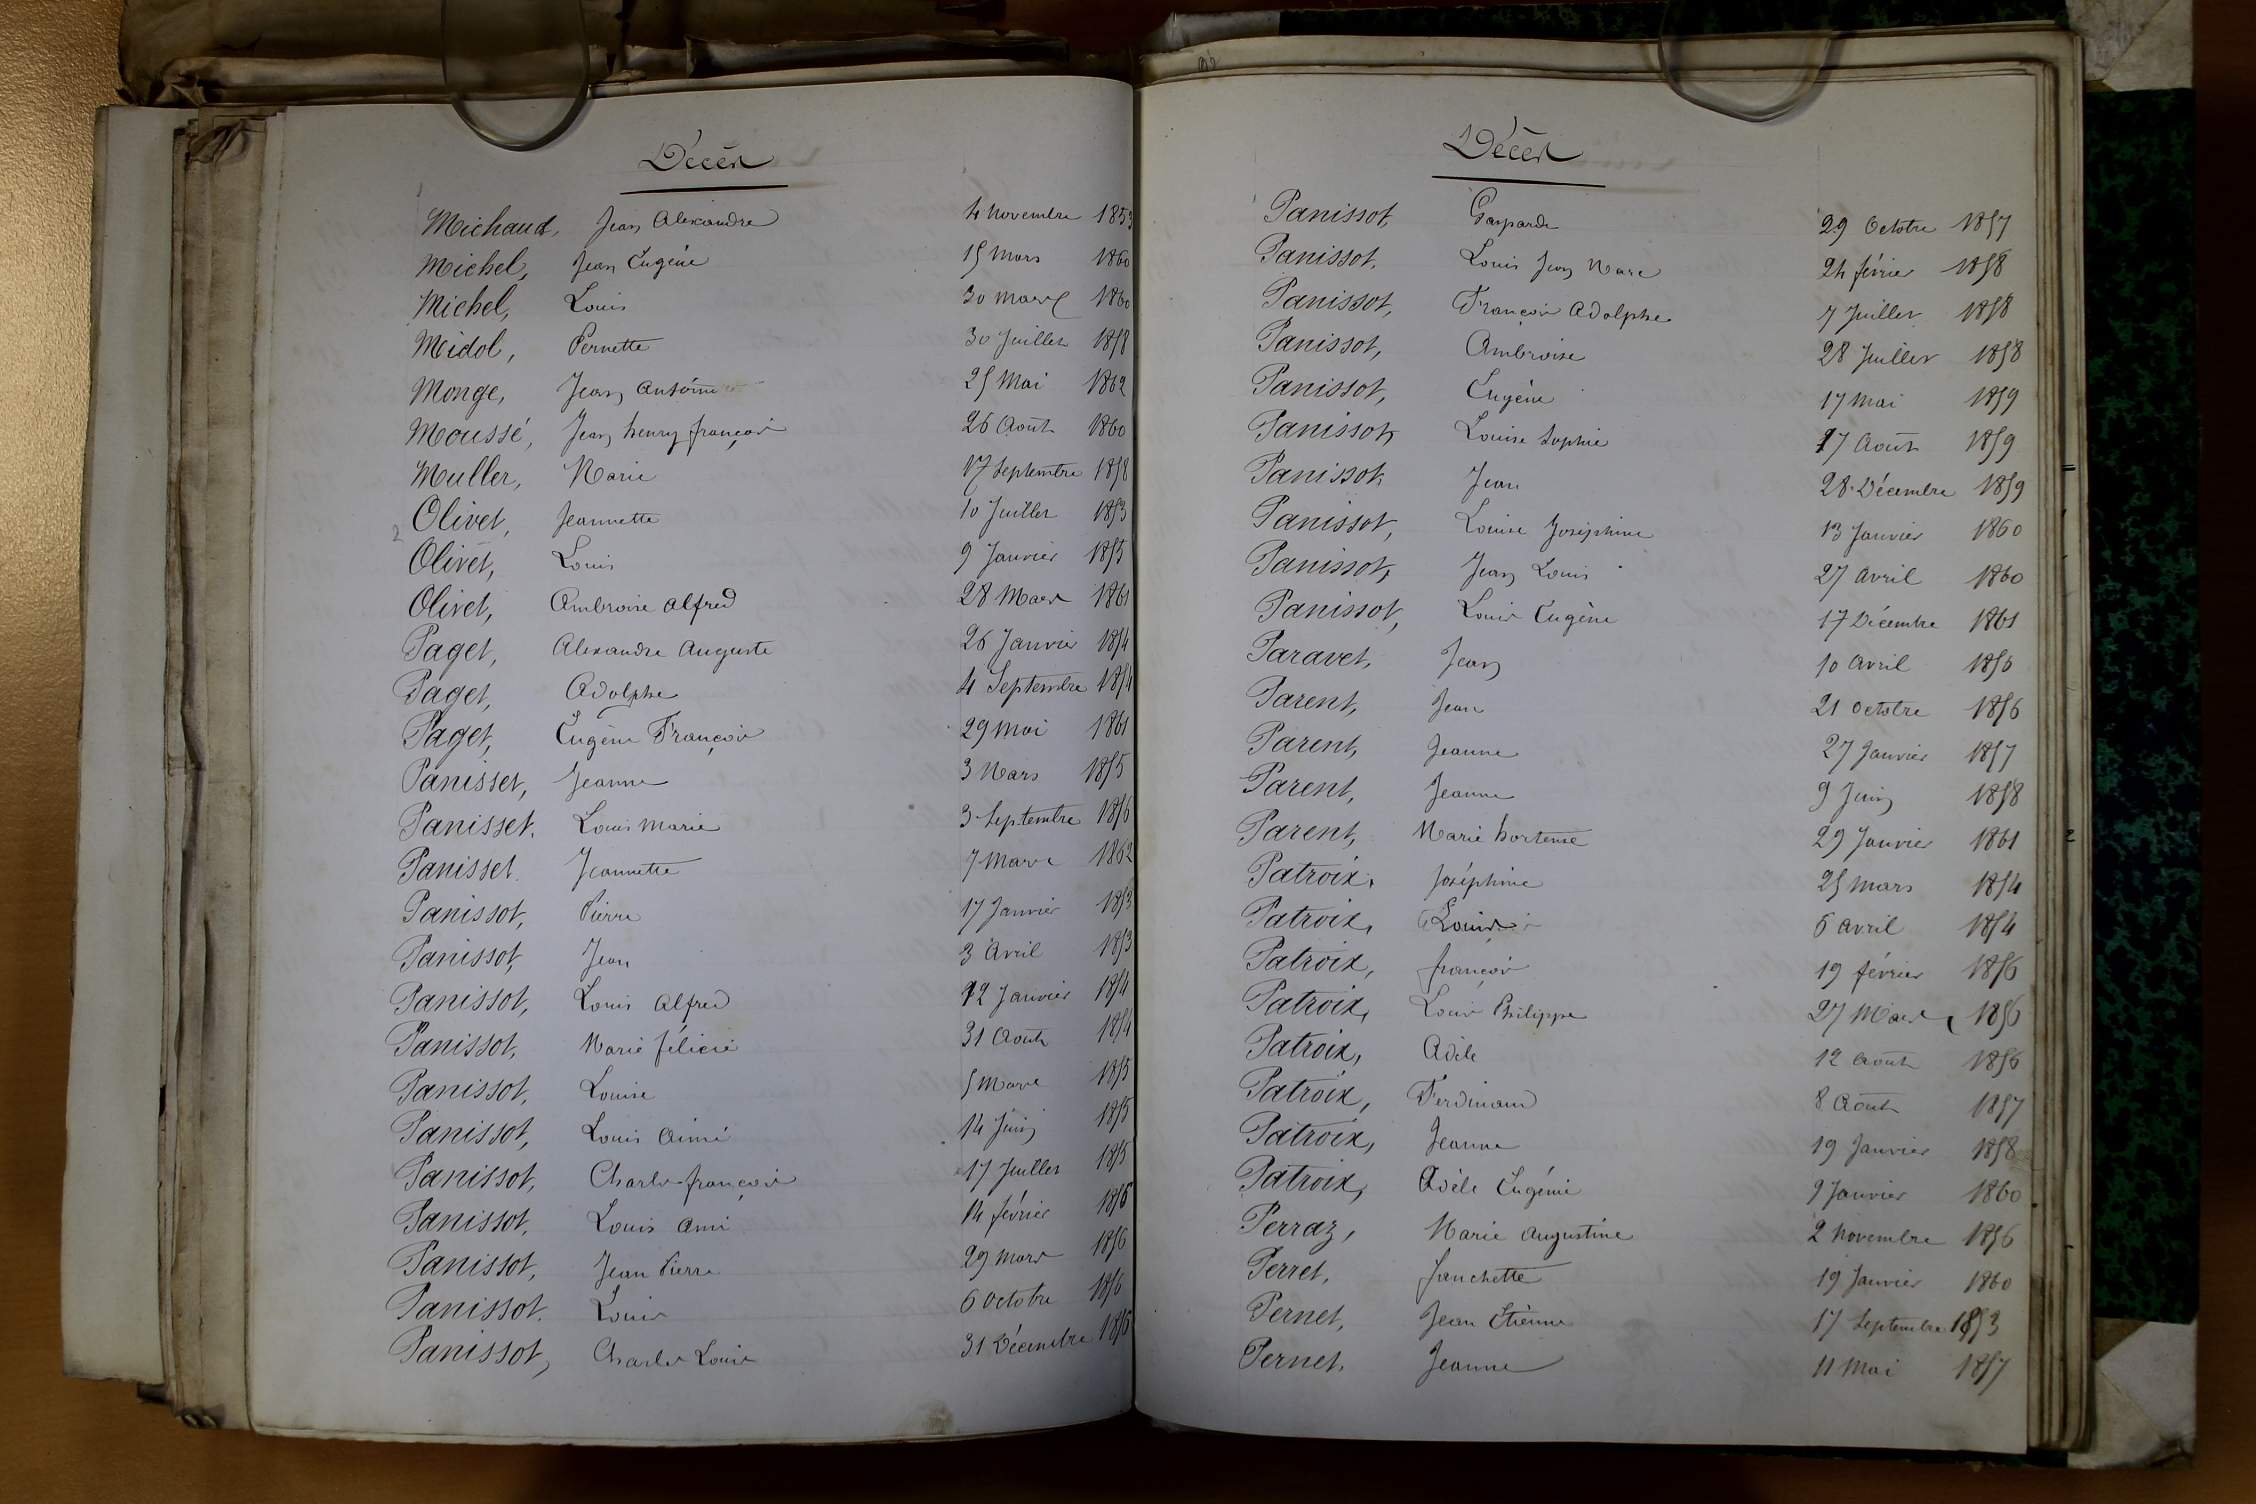 Décès
Michaud, Jean Alexandre 4 Novembre 1853
Michel, Jean Eugène 15 Mars 1860
Michel, Louis 30 Mars 1860
Midol, Pernette 30 Juillet 1858
Monge, Jean Antoine 25 Mai 1862
Moussé, Jean henry françois 26 Août 1860
Muller, Marie 17 Septembre 1858
Olivet, Jeannette 10 Juillet 1853
2
Olivet, Louis 9 Janvier 1855
Olivet, Ambroise Alfred 28 Mars 1861
Paget, Alexandre Auguste 26 Janvier 1854
Paget, Adolphe 4 Septembre 1854
Paget, Eugène François 29 Mai 1861
Panisset, Jeanne 3 Mars 1855
Panisset. Louis Marie 3 Septembre 1856
Panisset. Jeannette 7 Mars 1862
Panissot, Pierre 17 Janvier 1853
Panissot, Jean 3 Avril 1853
Panissot, Louis Alfred 12 Janvier 1854
Panissot, Marie félicie 31 Août 1854
Panissot, Louise 5 Mars 1855
Panissot, Louis Aimé 14 Juin 1855
Panissot, Charles françois 17 Juillet 1855
Panissot, Louis Ami 14 février 1856
Panissot, Jean Pierre 29 Mars 1856
Panissot. Louis 6 Octobre 1856
Panissot, Charles Louis 31 Décembre 1856
Décès
Panissot, Gasparde 29 Octobre 1857
Panissot. Louis Jean Marc 24 février 1858
Panissot, François Adolphe 7 Juillet 1858
Panissot, Ambroise 28 Juillet 1858
Panissot, Eugène 17 Mai 1859
Panissot, Louise Sophie 27 Août 1859
Panissot. Jean 28 Décembre 1859
Panissot, Louise Joséphine 13 Janvier 1860
Panissot, Jean Louis 27 Avril 1860
Panissot, Louis Eugène 17 Décembre 1861
Paravet, Jean 10 Avril 1856
Parent, Jean 21 Octobre 1856
Parent, Jeanne 27 Janvier 1857
Parent, Jeanne 9 Juin 1858
Parent, Marie hortense 29 Janvier 1861
Patroix, Joséphine 25 Mars 1854
Patroix, Louis 6 Avril 1854
Patroix, françois 19 février 1856
Patroix, Louis Philippe 27 Mars 1856
Patroix, Adèle 12 Août 1856
Patroix, Ferdinand 8 Août 1857
Patroix, Jeanne 19 Janvier 1858
Patroix, Adèle Eugénie 9 Janvier 1860
Perraz, Marie Augustine 2 Novembre 1856
Perret, fanchette 19 Janvier 1860
Pernet, Jean Etienne 17 Septembre 1853
Pernet. Jeanne 11 Mai 1857